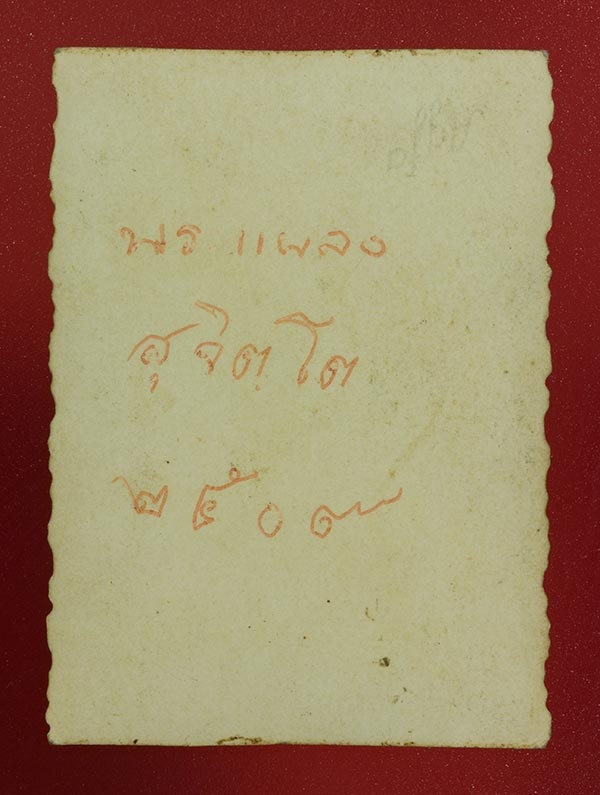 พร แผลง
สุจิตฺโต
๒๕๐๙